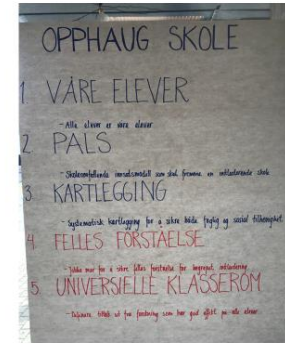 OPPHAUG SKOLE
1. VÅRE ELEVER
- Alle elever er våre elever
2. PALS
- Skoleomfattende innsatsmodell som skal fremme en inkluderende skole
3. KARTLEGGING
- Systematisk kartlegging for å sikre både faglig og sosial tilhørighet.
4. FELLES FORSTÅELSE
- Jobbe mer for å sikre felles forståelse for begrepet inkludering
5. UNIVERSIELLE KLASSEROM
- tiltak ut fra forskning som har god effekt på alle elever.